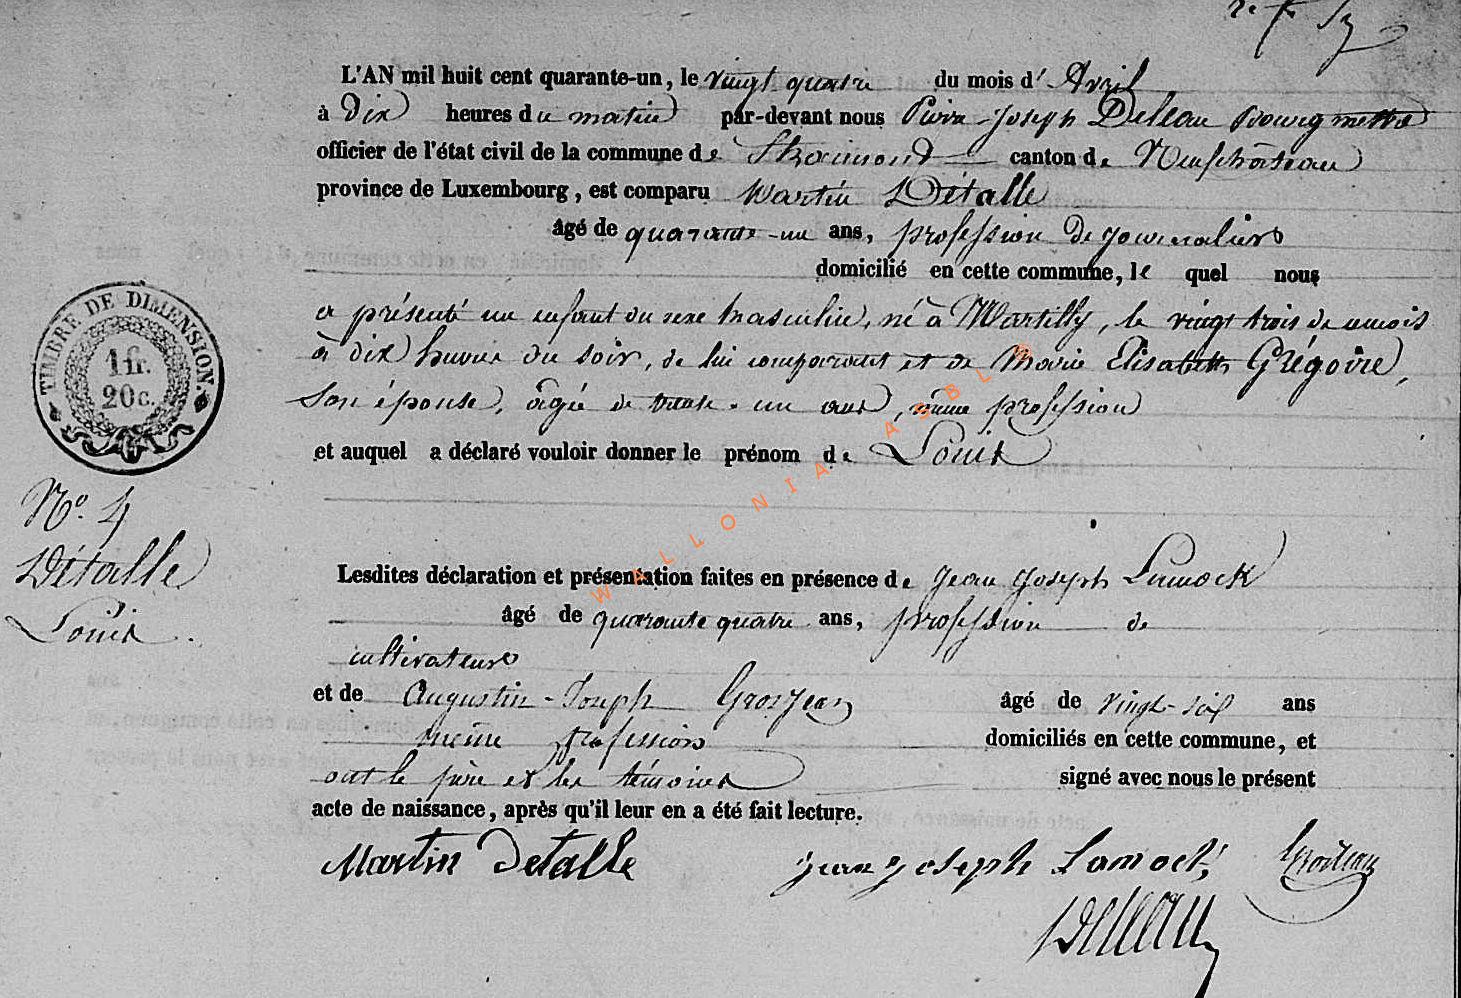 L'AN mil huit cent quarante-un, le vingt quatre du mois d' Avril
à Dix heures du matin par-devant nous Pierre-Joseph Deleau Bourgmettre
officier de l'état civil de la commune de Straimont canton de Neufchâteau
province de Luxembourg, est comparu Martin Détalle
âgé de quarante-un ans, profession de journaliers
domicilié en cette commune, le quel nous
a présenté un enfant du sexe masculin, né à Martilly, le vingt trois de mois
à dix heures du soir, de lui comparant et de Marie Elisabeth Grégoire,
son épouse, âgée de trente-un ans, même profession
et auquel a déclaré vouloir donner le prénom de Louis
TIMBRE DE DIMENSION.
1 fr.
20 c.
N°. 4
Détalle
Louis.
Lesdites déclaration et présentation faites en présence de Jean Joseph
âgé de quarante quatre ans, profession de
cultivateurs
et de Augustin-Joseph Grosjean âgé de vingt-six ans
même profession domiciliés en cette commune, et
ont le père et les témoins signé avec nous le présent
acte de naissance, après qu'il leur en a été fait lecture.
Martin Detalle Jean Joseph Lamock Grosjean
Deleau
WALLONIA ASBL ©